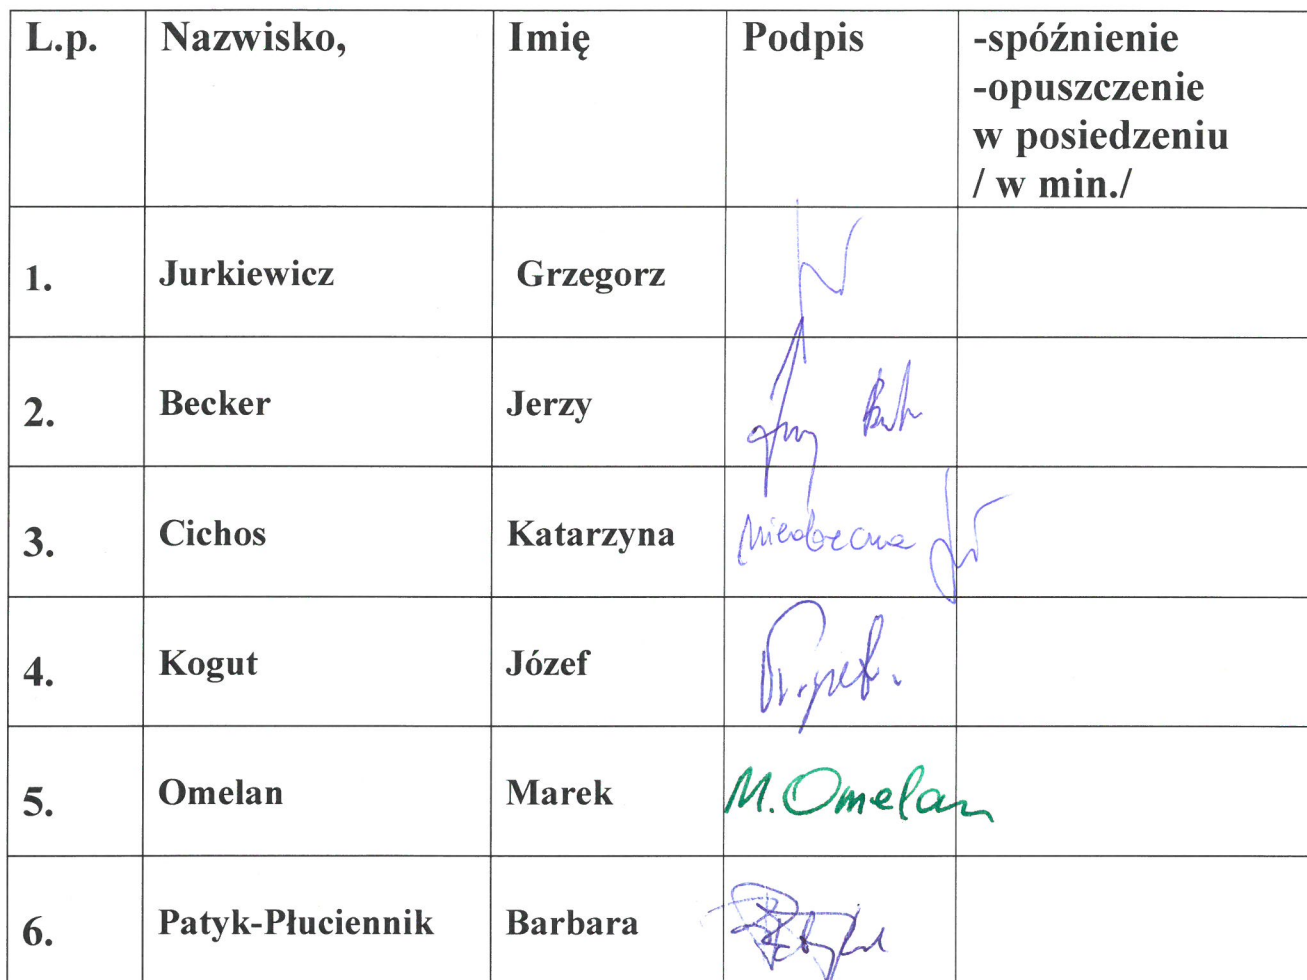 L.p. Nazwisko, Imię Podpis -spóźnienie
-opuszczenie
w posiedzeniu
/ w min./
1. Jurkiewicz Grzegorz
2. Becker Jerzy
3. Cichos Katarzyna nieobecna
4. Kogut Józef
5. Omelan Marek M. Omelan
6. Patyk-Płuciennik Barbara